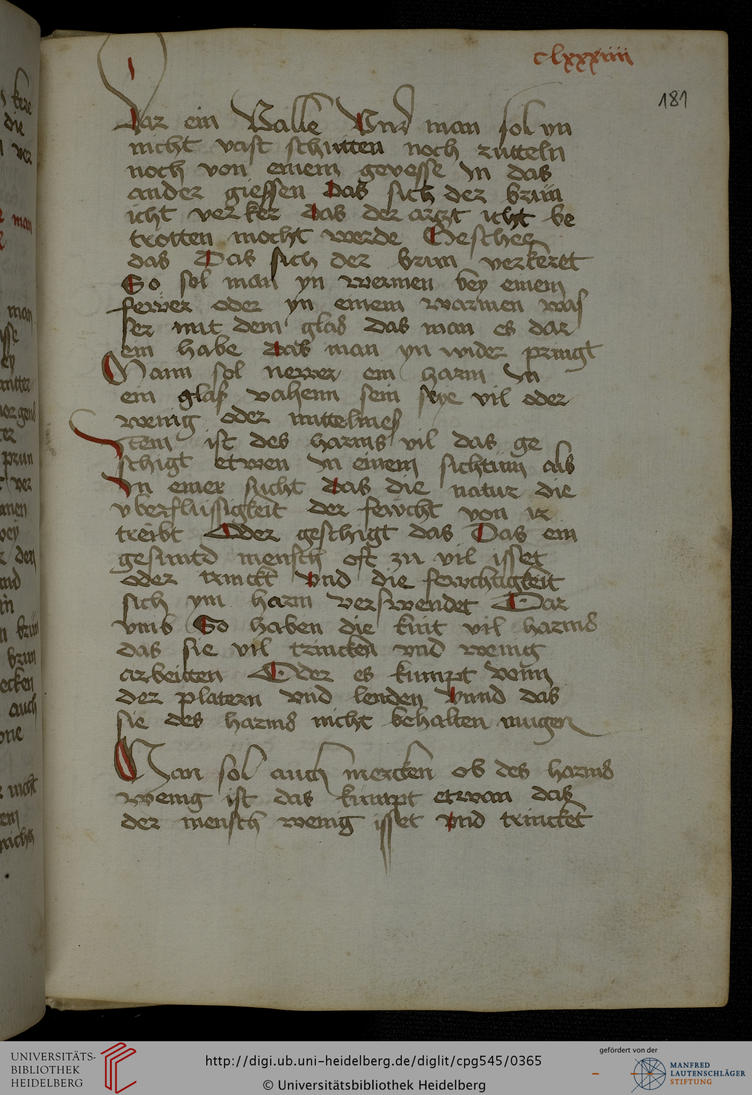 clxxxiiii
181
dar ein valle Vnd man sol yn
nicht vast schutten noch zutteln
noch von einem gevesse In das
ander giessen Das sich der brun
icht verker das der arczt icht be
trotten mocht werde Geschee
das Das sich der brun verkeret
So sol man yn wermen bey einem
fewer oder yn einem warmen was
ser mit dem glas das man es dar
ein habe das man yn wider pringt
Wann sol newer ein harm In
ein glas vahenn sein seye vil oder
wenig oder mittelmes
Item ist des harms vil das ge
schigt etwen In einem sichtum als
In einer sucht das die natur die
vberflussigkeit der fewcht von ir
treibt Oder geschigt das Das ein
gesuntd mensch oft zu vil isset
oder trinckt vnd die fewchtigkeit
sich ym harm verswendet Dar
vmb So haben die kint vil harms
das sie vil trincken vnd wenig
arbeitten Oder es kumpt vonn
der platern vnd lenden Vnnd das
sie des harms nicht behalten mugen
Man sol auch mercken ob des harms
wenig ist das kumpt etwan das
der mensch wenig isset vnd trincket
UNIVERSITÄTS-
BIBLIOTHEK
HEIDELBERG
http://digi.ub.uni-heidelberg.de/diglit/cpg545/0365
© Universitätsbibliothek Heidelberg
gefördert von der
MANFRED
LAUTENSCHLÄGER
STIFTUNG